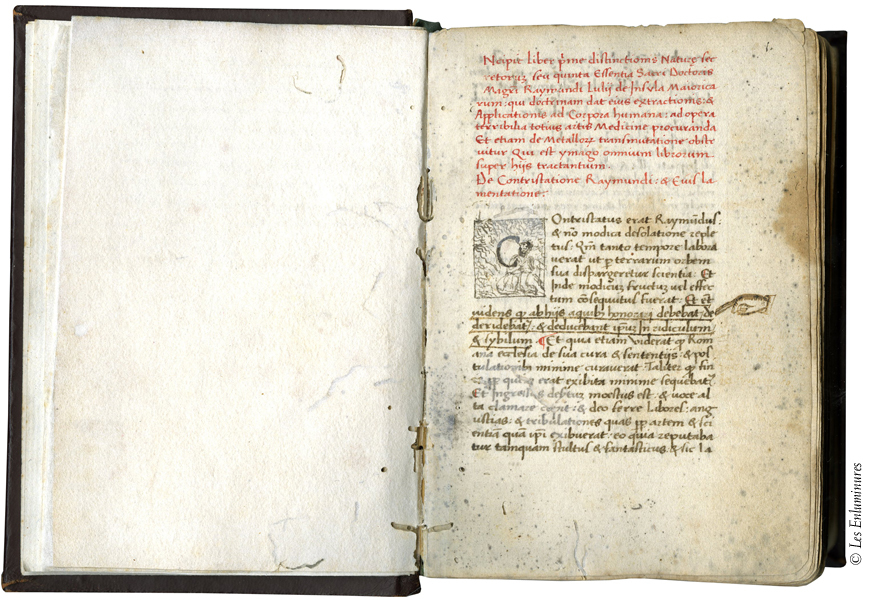 Ncipit liber p̄me distinctionis Nature sec
retoruꝫ seu quinta Essentia Sacri Doctoris
Magri Raymundi Lulij de Insola Maiorica
rum: qui doctrinam dat eius extractionis: &
Applicationis ad Corpora humana: ad opera
terribilia totius artis Medicine procuranda
Et etiam de Metalloꝝ transmutatione obstr
uitur Qui est ymago omnium librorum
super hijs tractantium.
De Contristatione Raymundi: & Eius la
mentatione:
Ontristatus erat Raymūdus:
& nō modica desolatione reple
tus: Qm̄ tanto tempore labora
verat ut p̄ terrarum orbem
sua dispargeretur scientia: Et
Inde modicuꝫ fructuꝫ vel effec
tum cōsequutus fuerat: Et
videns qꝫ ab hijs a quibꝫ honorari debebat: de
deridebat: & deducebant ipm̄ in ridiculum
& sybilum. Et quia etiam viderat qꝫ Rom
ana ecclesia de sua cura & sententijs & pos
tulationibꝫ minime curaverat Taliter qꝫ fin
erat exibita minime sequebat
Et moestus est. & voce al
ta clamare cepit: & deo ferre labores: ang
ustias: & tribulationes quas pp̄ artem & sci
entiam quā ipi exibuerat: eo quia reputaba
tur tamquam stultus & fantasticus: & sic la
© Les Enluminures